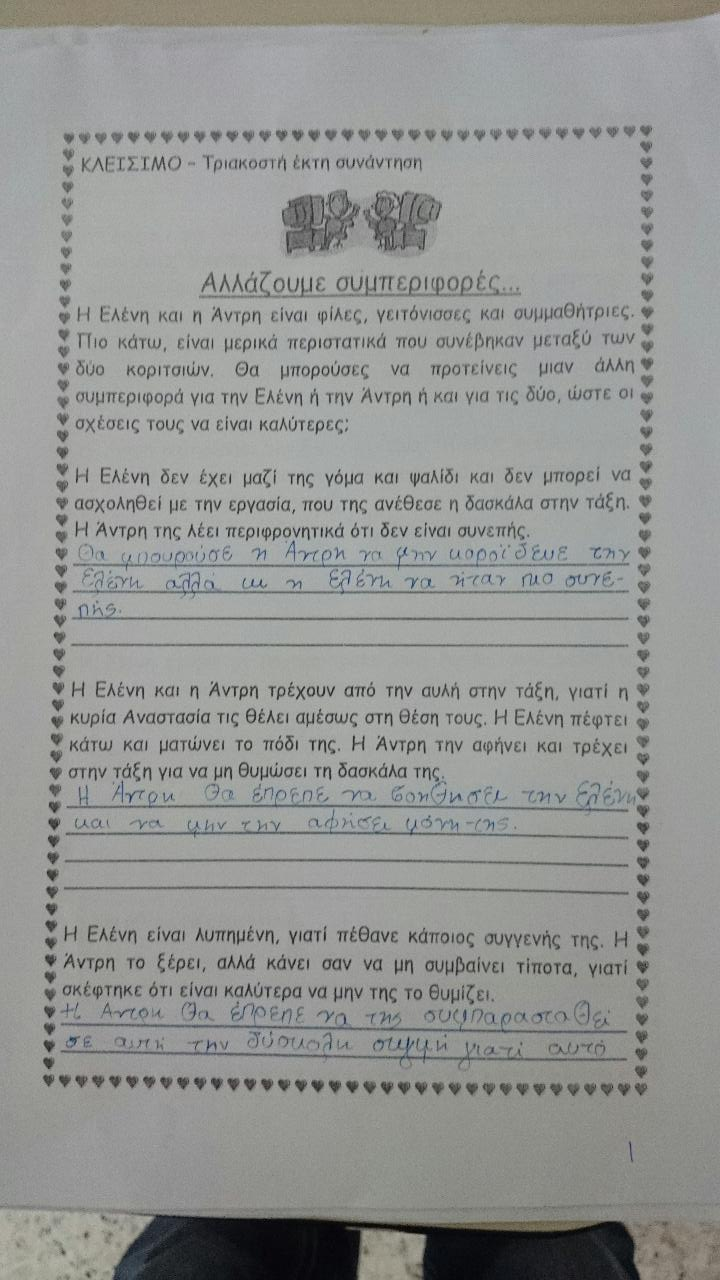 ΚΛΕΙΣΙΜΟ - Τριακοστή έκτη συνάντηση
Αλλάζουμε συμπεριφορές...
Η Ελένη και η Άντρη είναι φίλες, γειτόνισσες και συμμαθήτριες.
Πιο κάτω, είναι μερικά περιστατικά που συνέβηκαν μεταξύ των
δύο κοριτσιών. Θα μπορούσες να προτείνεις μιαν άλλη
συμπεριφορά για την Ελένη ή την Άντρη ή και για τις δύο, ώστε οι
σχέσεις τους να είναι καλύτερες;
Η Ελένη δεν έχει μαζί της γόμα και ψαλίδι και δεν μπορεί να
ασχοληθεί με την εργασία, που της ανέθεσε η δασκάλα στην τάξη.
Η Άντρη της λέει περιφρονητικά ότι δεν είναι συνεπής.
Θα μπουρούσε η Άντρη να μην κοροϊδευε την
Ελένη αλλά κι η Ελένη να ήταν πιο συνε-
πής.
Η Ελένη και η Άντρη τρέχουν από την αυλή στην τάξη, γιατί η
κυρία Αναστασία τις θέλει αμέσως στη θέση τους. Η Ελένη πέφτει
κάτω και ματώνει το πόδι της. Η Άντρη την αφήνει και τρέχει
στην τάξη για να μη θυμώσει τη δασκάλα της.
Η Άντρη θα έπρεπε να βοηθήσει την Ελένη
και να μην την αφήσει μόνη της.
Η Ελένη είναι λυπημένη, γιατί πέθανε κάποιος συγγενής της. Η
Άντρη το ξέρει, αλλά κάνει σαν να μη συμβαίνει τίποτα, γιατί
σκέφτηκε ότι είναι καλύτερα να μην της το θυμίζει.
Η Άντρη θα έπρεπε να της συμπαρασταθεί
σε αυτή την δύσκολη στιγμή γιατί αυτό
1